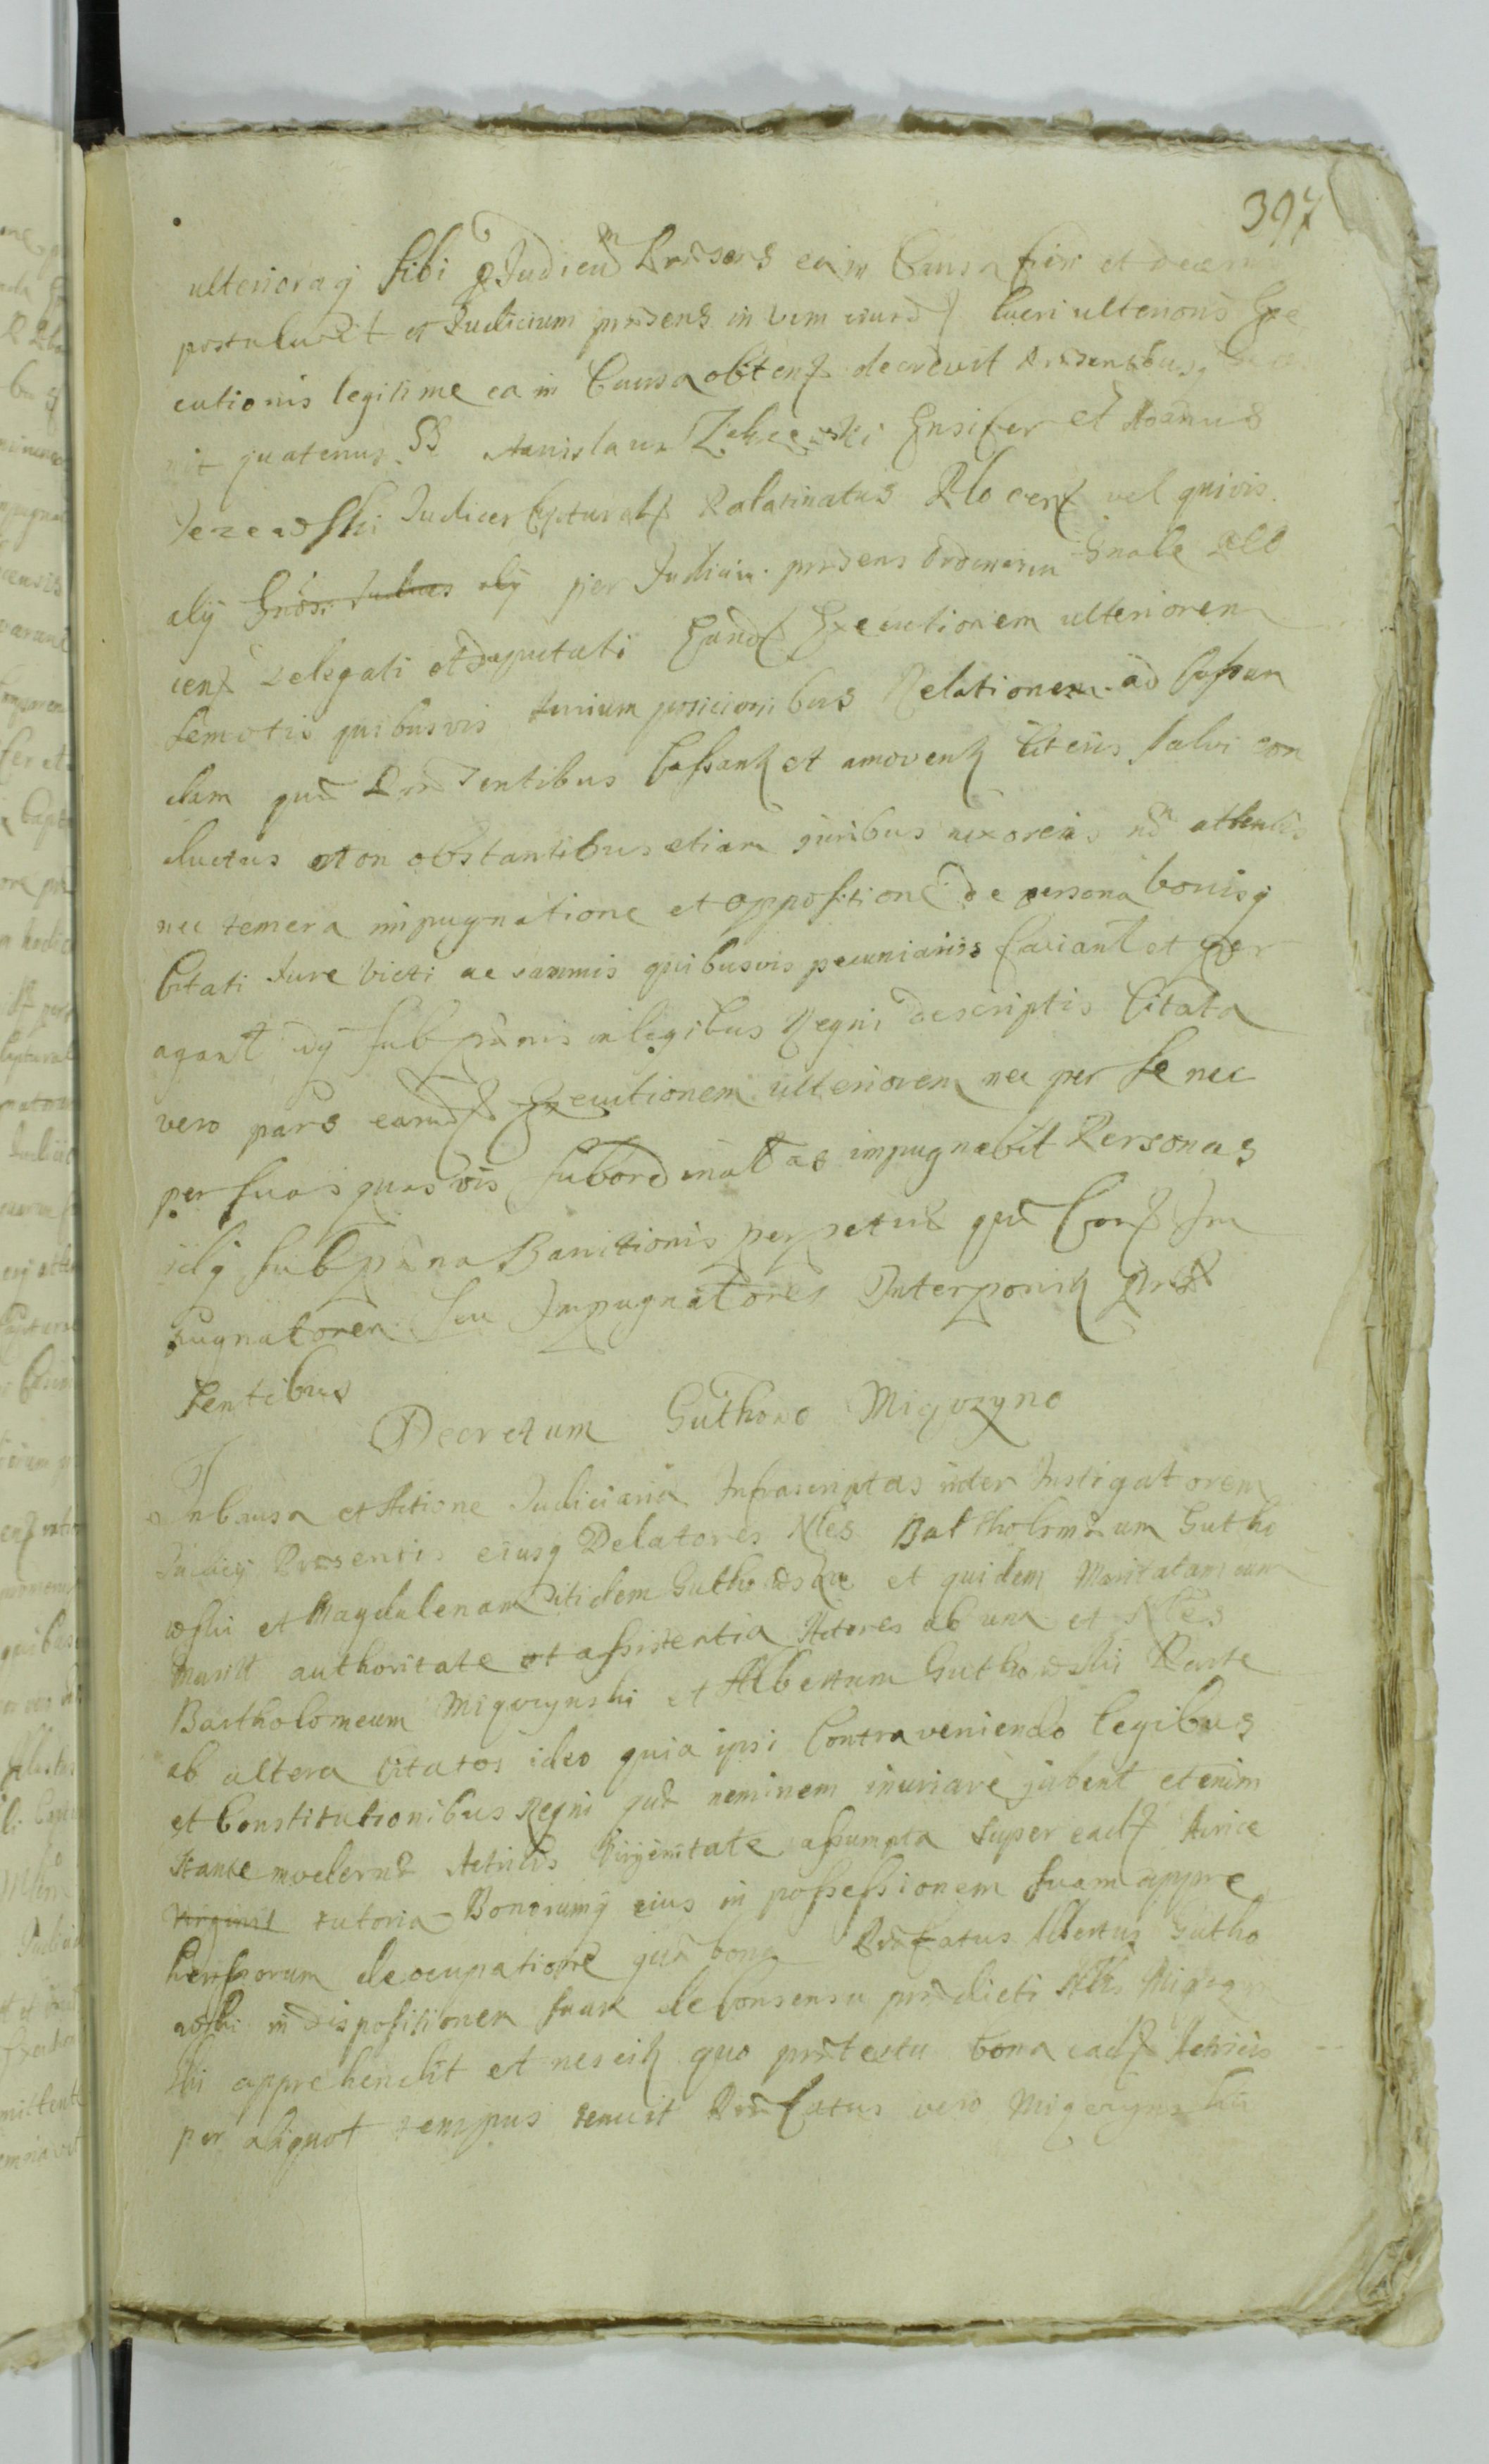 397
ulterioraq sibi p Judicium Præsens ea in Causa fieri et decerni
postulavit et Judicium præsens in vim eiusd lucri ulterioris Exe
cutionis legitime ea in Causa obtent decrevit Præsentibus
nit quatenus Stanislaus Ensifer et Joannes
Jezewski Judices Capturales Palatinatus Plocen vel quivis
alij Gnosi Judices alij per Judicium præsens Ordinarium Gnale Plo
cen Delegati et deputati Eand Executionem ulteriorem
semotis quibusvis Relationem ad cassan
dam quæ Præsentibus cassant et amovent literis salvi con
ductus non obstantibus etiam juribus uxoreis nec attentis
nec temera impugnatione et oppositione de persona bonisq
Citati Jure victi ac summis quibusvis pecuniariis faciant et per
agant idq sub pænis in legibus Regni descriptis Citata
vero pars eand Executionem ulteriorem nec per se nec
per suas quasvis subordinatas impugnabit Personas
idq sub pæna Banitionis perpetuæ quæ Contra Im
pugnatorem seu Impugnatores Interponit Præ
sentibus
Decretum Guthowo Migozyno
In Causa et Actione Judiciaria Infrascriptas inter Instigatorem
Judicij Præsentis eiusq Delatores Nles Bartholomæum Gutho
wski et Magdalenam itidem Guthowska et quidem Maritatam cum
Mariti authoritate et assistentia Actores ab una et Nles
Bartholomeum Migozynski et Albertum Guthowski Parte
ab altera Citatos ideo quia ipsi Contraveniendo legibus
et Constitutionibus Regni quæ neminem iniuriare jubent etenim
stante moderna Actricis Virginitate assumpta super ead Actrice
Virginit tutoria Bonorumq eius in possessionem suam appre
hensorum de ocupatione quæ bona Præfatus Albertus Gutho
wski in dispositionem suam de Consensu prædicti Nlis Migozyn
ski apprehendit et nescit quo prætextu bona ead Actricis
per aliquot tempus tenuit Præfatus vero Migozynski